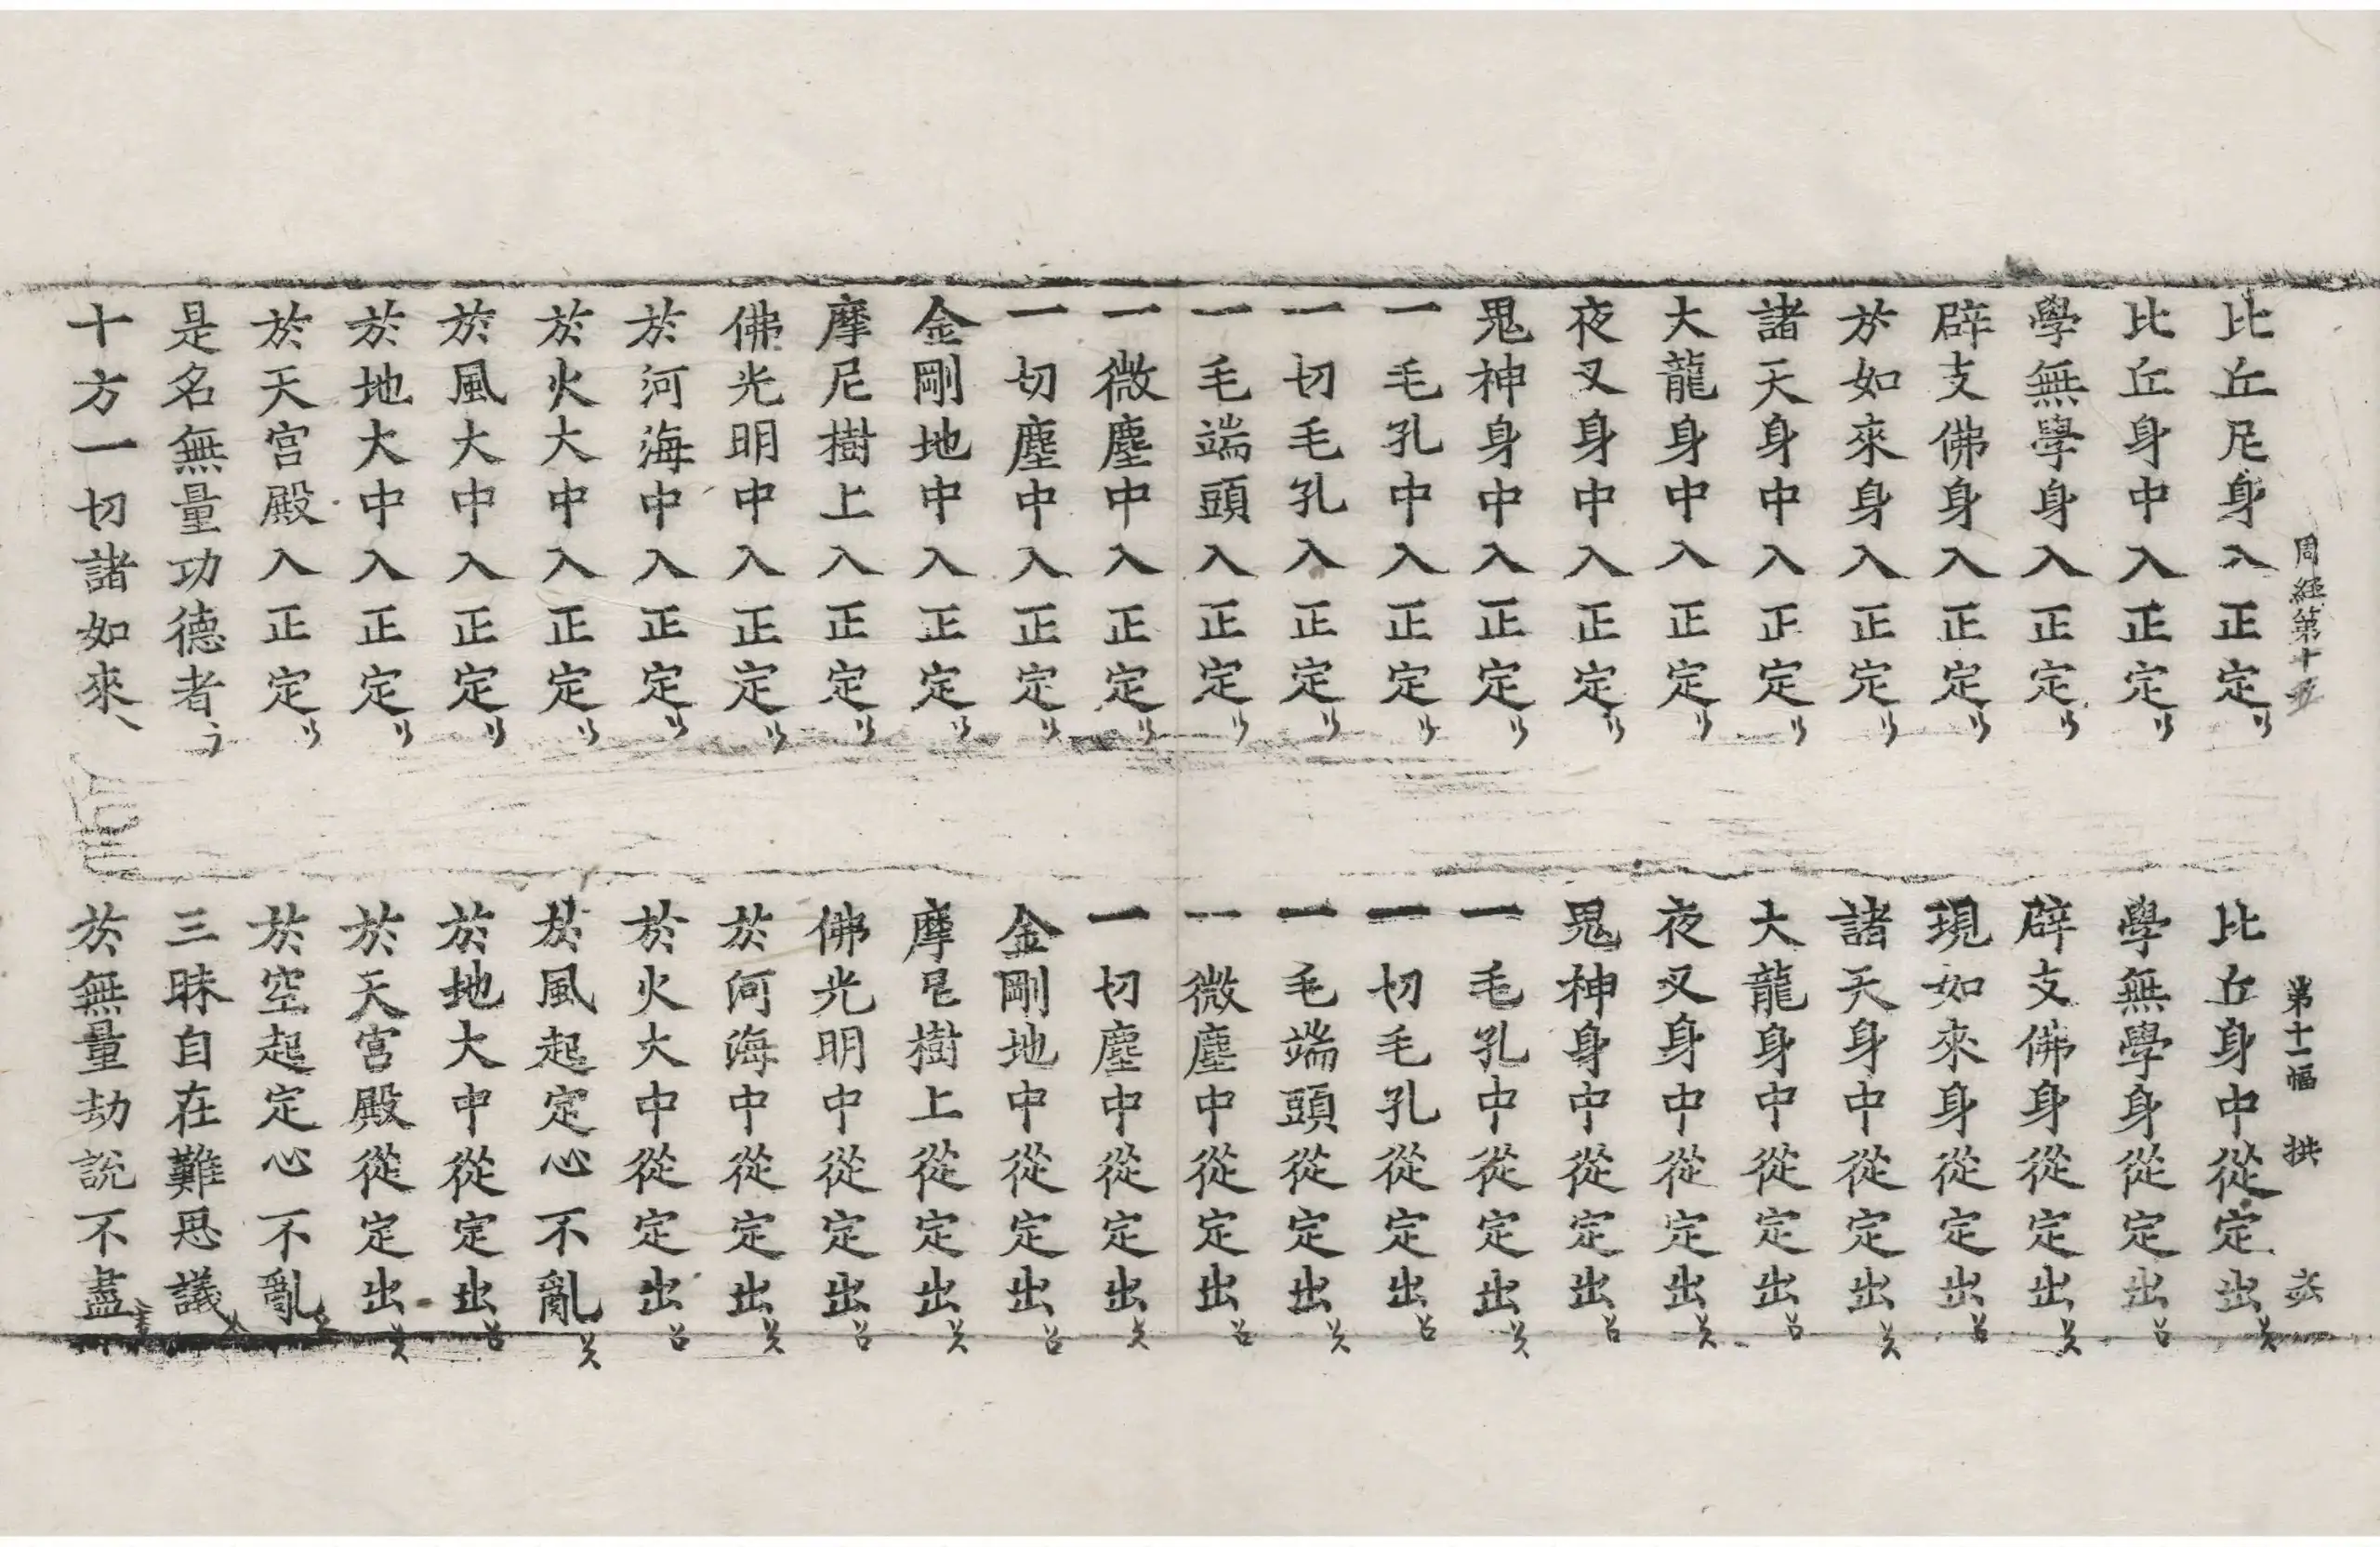 周経第十五 第十一幅 拱
比丘尼身入正定 比丘身中從定出
比丘身中入正定 學無學身從定出
學無學身入正定 辟支佛身從定出
辟支佛身入正定 現如來身從定出
於如來身入正定 諸天身中從定出
諸天身中入正定 大龍身中從定出
大龍身中入正定 夜叉身中從定出
夜叉身中入正定 鬼神身中從定出
鬼神身中入正定 一毛孔中從定出
一毛孔中入正定 一切毛孔從定出
一切毛孔入正定 一毛端頭從定出
一毛端頭入正定 一微塵中從定出
一微塵中入正定 一切塵中從定出
一切塵中入正定 金剛地中從定出
金剛地中入正定 摩尼樹上從定出
摩尼樹上入正定 佛光明中從定出
佛光明中入正定 於河海中從定出
於河海中入正定 於火大中從定出
於火大中入正定 於風起定心不亂
於風大中入正定 於地大中從定出
於地大中入正定 於天宮殿從定出
於天宮殿入正定 於空起定心不亂
是名無量功德者 三昧自在難思議
十方一切諸如來 於無量劫說不盡